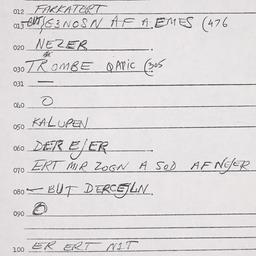 012 FARKATORT
013 -BUT/G3NOSN AF A EMES (476
020 NEZER
030 TROMBE QAVIC (305
031 —
040 O
050 KALUPEN
060 DER EJER
070 ERT MIR ZOGN A SOD AF NEJER
080 - BUT DERCEJLN
090 O
100 ER ERT NIT